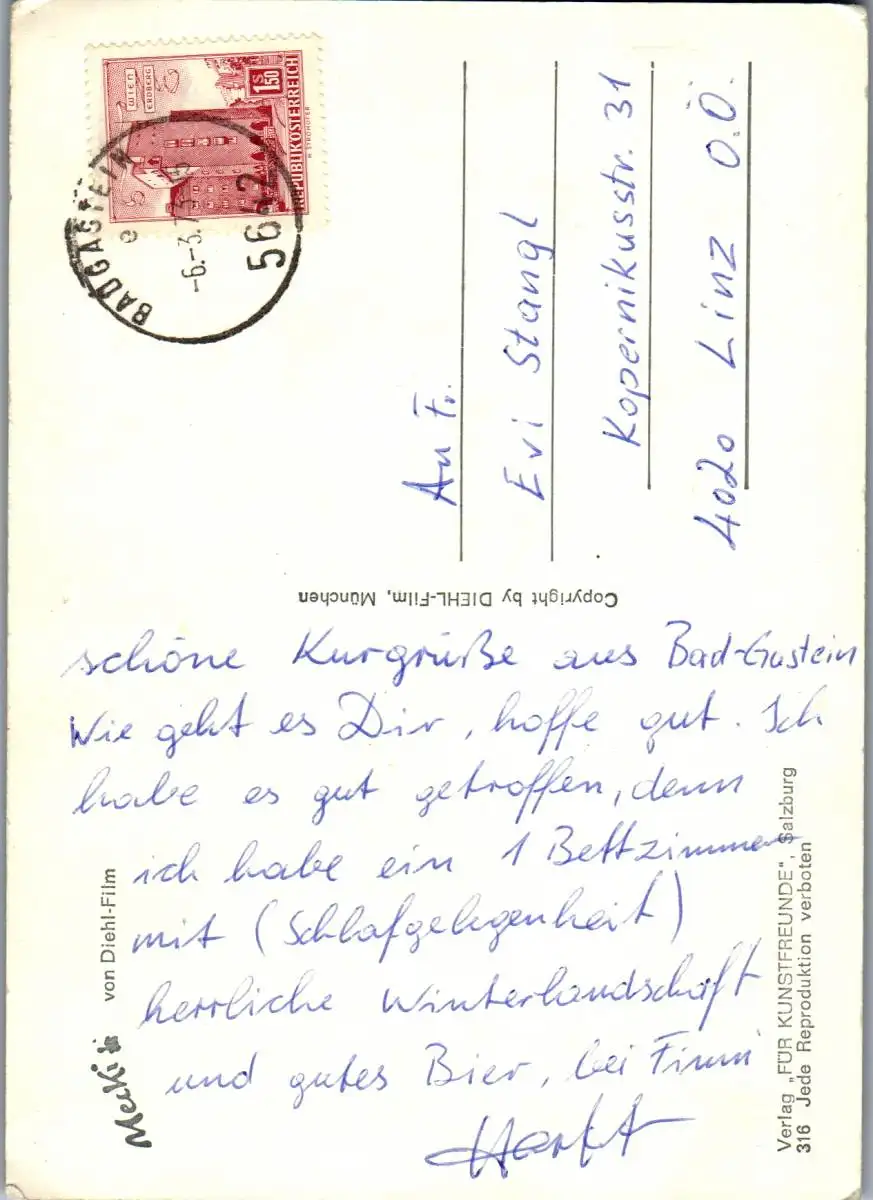 WIEN
ERDBERG
S 1.50
REPUBLIK ÖSTERREICH
BADGASTEIN
-6.-3.73
An Fr.
Evi Stangl
Kopernikusstr. 31
4020 Linz O.Ö.
Copyright by DIEHL-Film, München
schöne Kurgrüße aus Bad-Gastein
Wie geht es Dir, hoffe gut. Ich
habe es gut getroffen, denn
ich habe ein 1 Bettzimmer
mit (Schlafgelegenheit)
herrliche Winterlandschaft
und gutes Bier, bei Finni
Mecki von Diehl-Film
Verlag „FÜR KUNSTFREUNDE“, Salzburg
316 Jede Reproduktion verboten